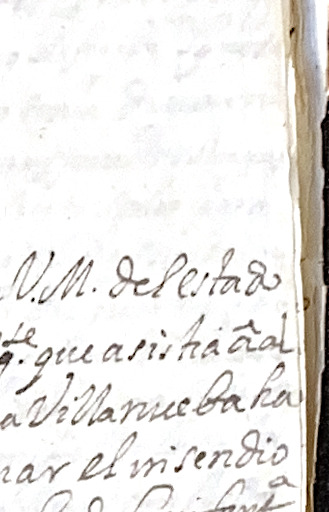 V.M. del estado
que asistia â al
a Villanueba ha
nar el insendio